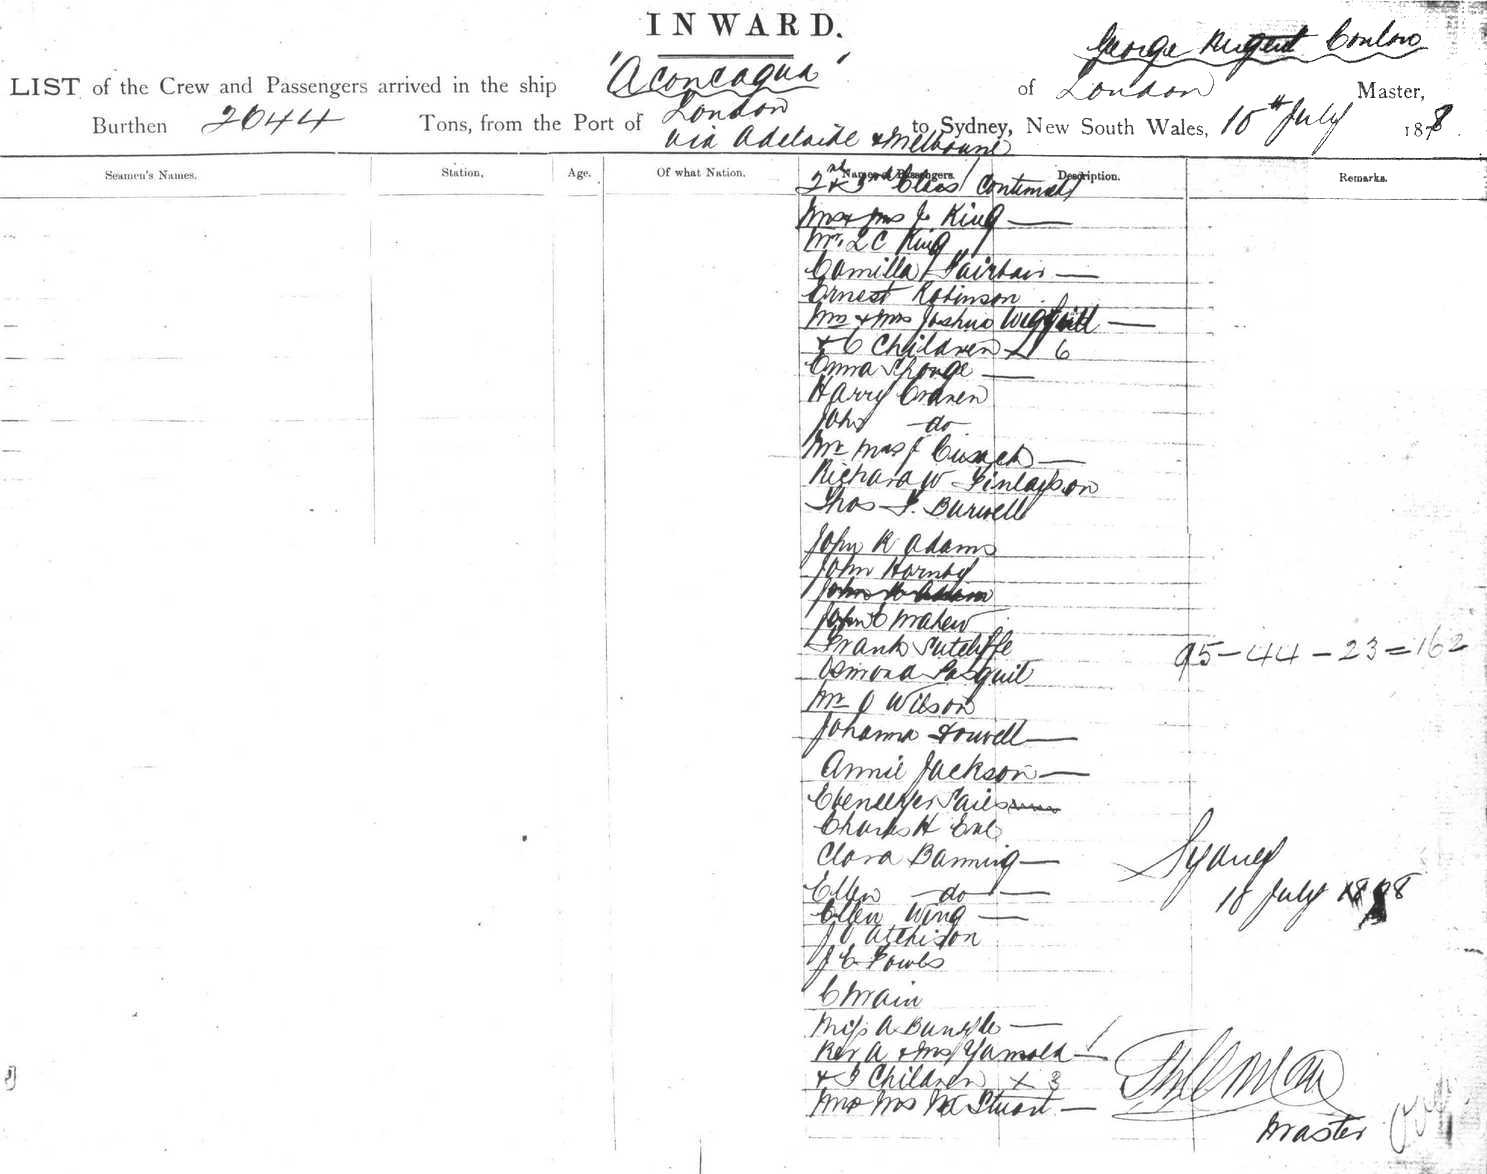 INWARD.
George Nugent Conlow
LIST of the Crew and Passengers arrived in the ship 'Aconcagua' of London Master,
Burthen 2644 Tons, from the Port of London to Sydney, New South Wales, 18th July 1878.
via Adelaide & Melbourne
Seamen's Names. Station. Age. Of what Nation. Names of Passengers. Description. Remarks.
2nd & 3rd Class Continued
Mr & Mrs J King —
Mr. L C King
Camilla Fairbair —
Ernest Robinson
Mr & Mrs Joshua —
& 6 Children × 6
Emma Sponge —
Harry Craven
John do
Mr Mrs J Cusack —
Richard W Finlayson
Thos F. Burwell
John R Adams
John Hornby
John C Mahew
Frank Sutcliffe
95 — 44 — 23 = 162
Osmond Pasquil
Mr J Wilson
Johanna Fowell —
Annie Jackson —
Ebenezer
Charles H
Clara Banning —
Sydney
Ellen do —
18 July 1878
Ellen Wing —
J J Atchison
J E Fowls
C Main
Miss A Bungle —
Rev A & Mrs Yarnold —
& 3 Children × 3
Mr & Mrs Stuart —
Master